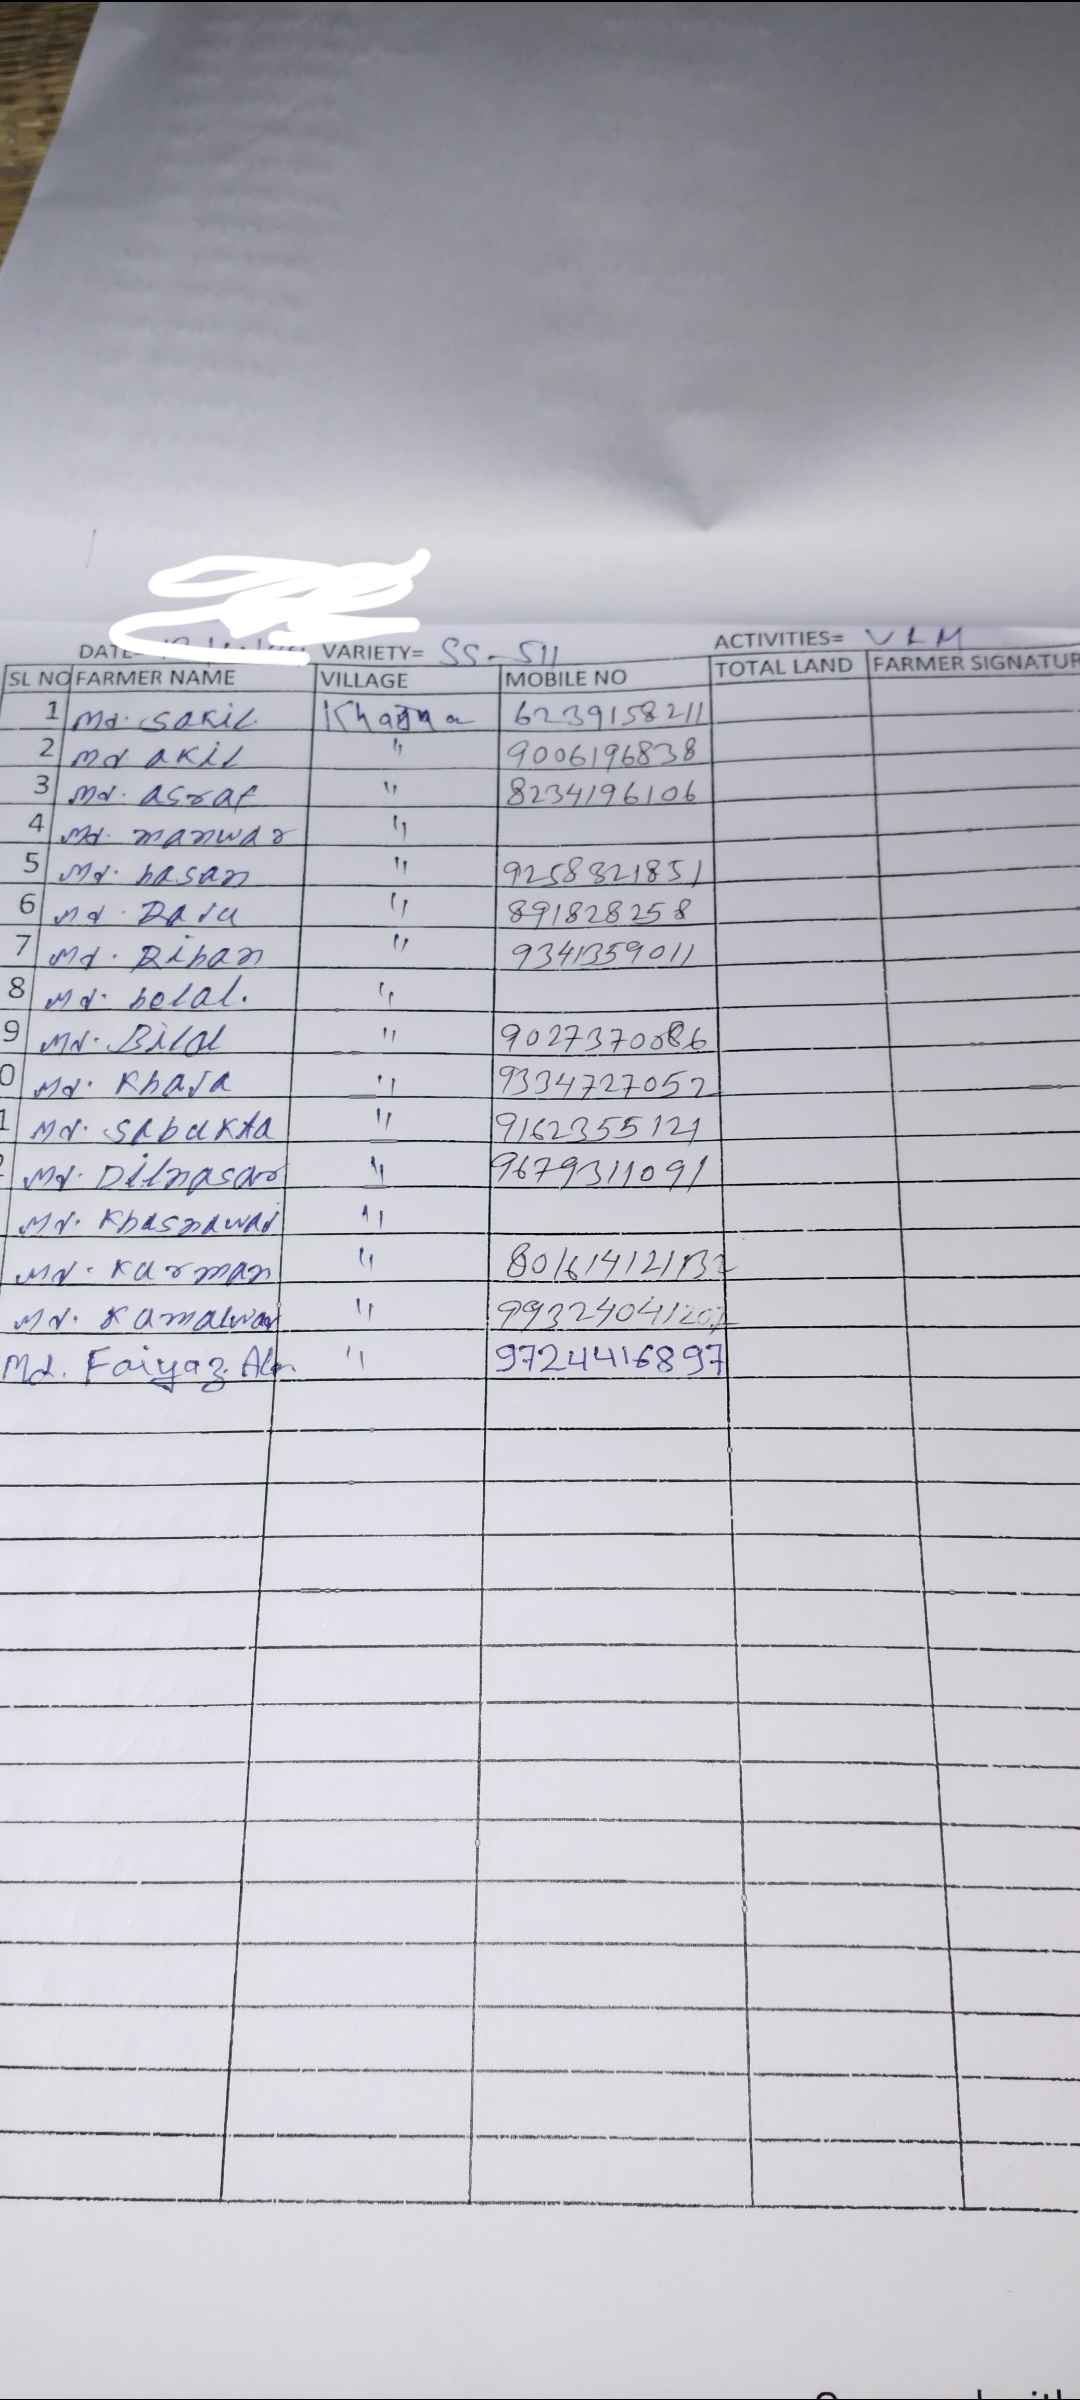 DATE= VARIETY= SS-511 ACTIVITIES= VLM
SL NO FARMER NAME VILLAGE MOBILE NO TOTAL LAND FARMER SIGNATUR
1 Md. Sakil 6239158211
2 Md akil " 9006196838
3 Md. asraf " 8234196106
4 Md. manwar "
5 Md. hasan " 9258321851
6 Md. Raju " 891828258
7 Md. Rihan " 9341359011
8 Md. helal. "
9 Md. Bilal " 9027370086
0 Md. Khaja " 9334727052
1 Md. Sabakta " 9162355121
Md. Dilnasar " 9679311091
Md. Khasnawaj "
Md. Karman "
Md. Kamalwar "
Md. Faiyaz Alm " 9724416897